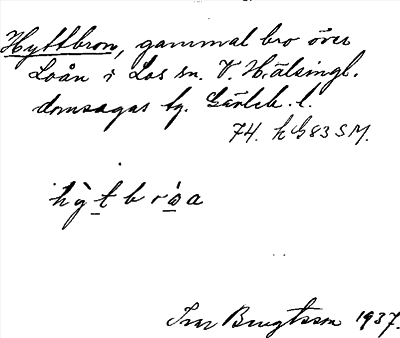 Hyttbron, gammal bro över
Loån i Los sn. V. Hälsingl.
domsagas tg. Gävleb. l.
74. h G 83 S M.
hỳt brȯa
Ivar Bengtsson 1937.